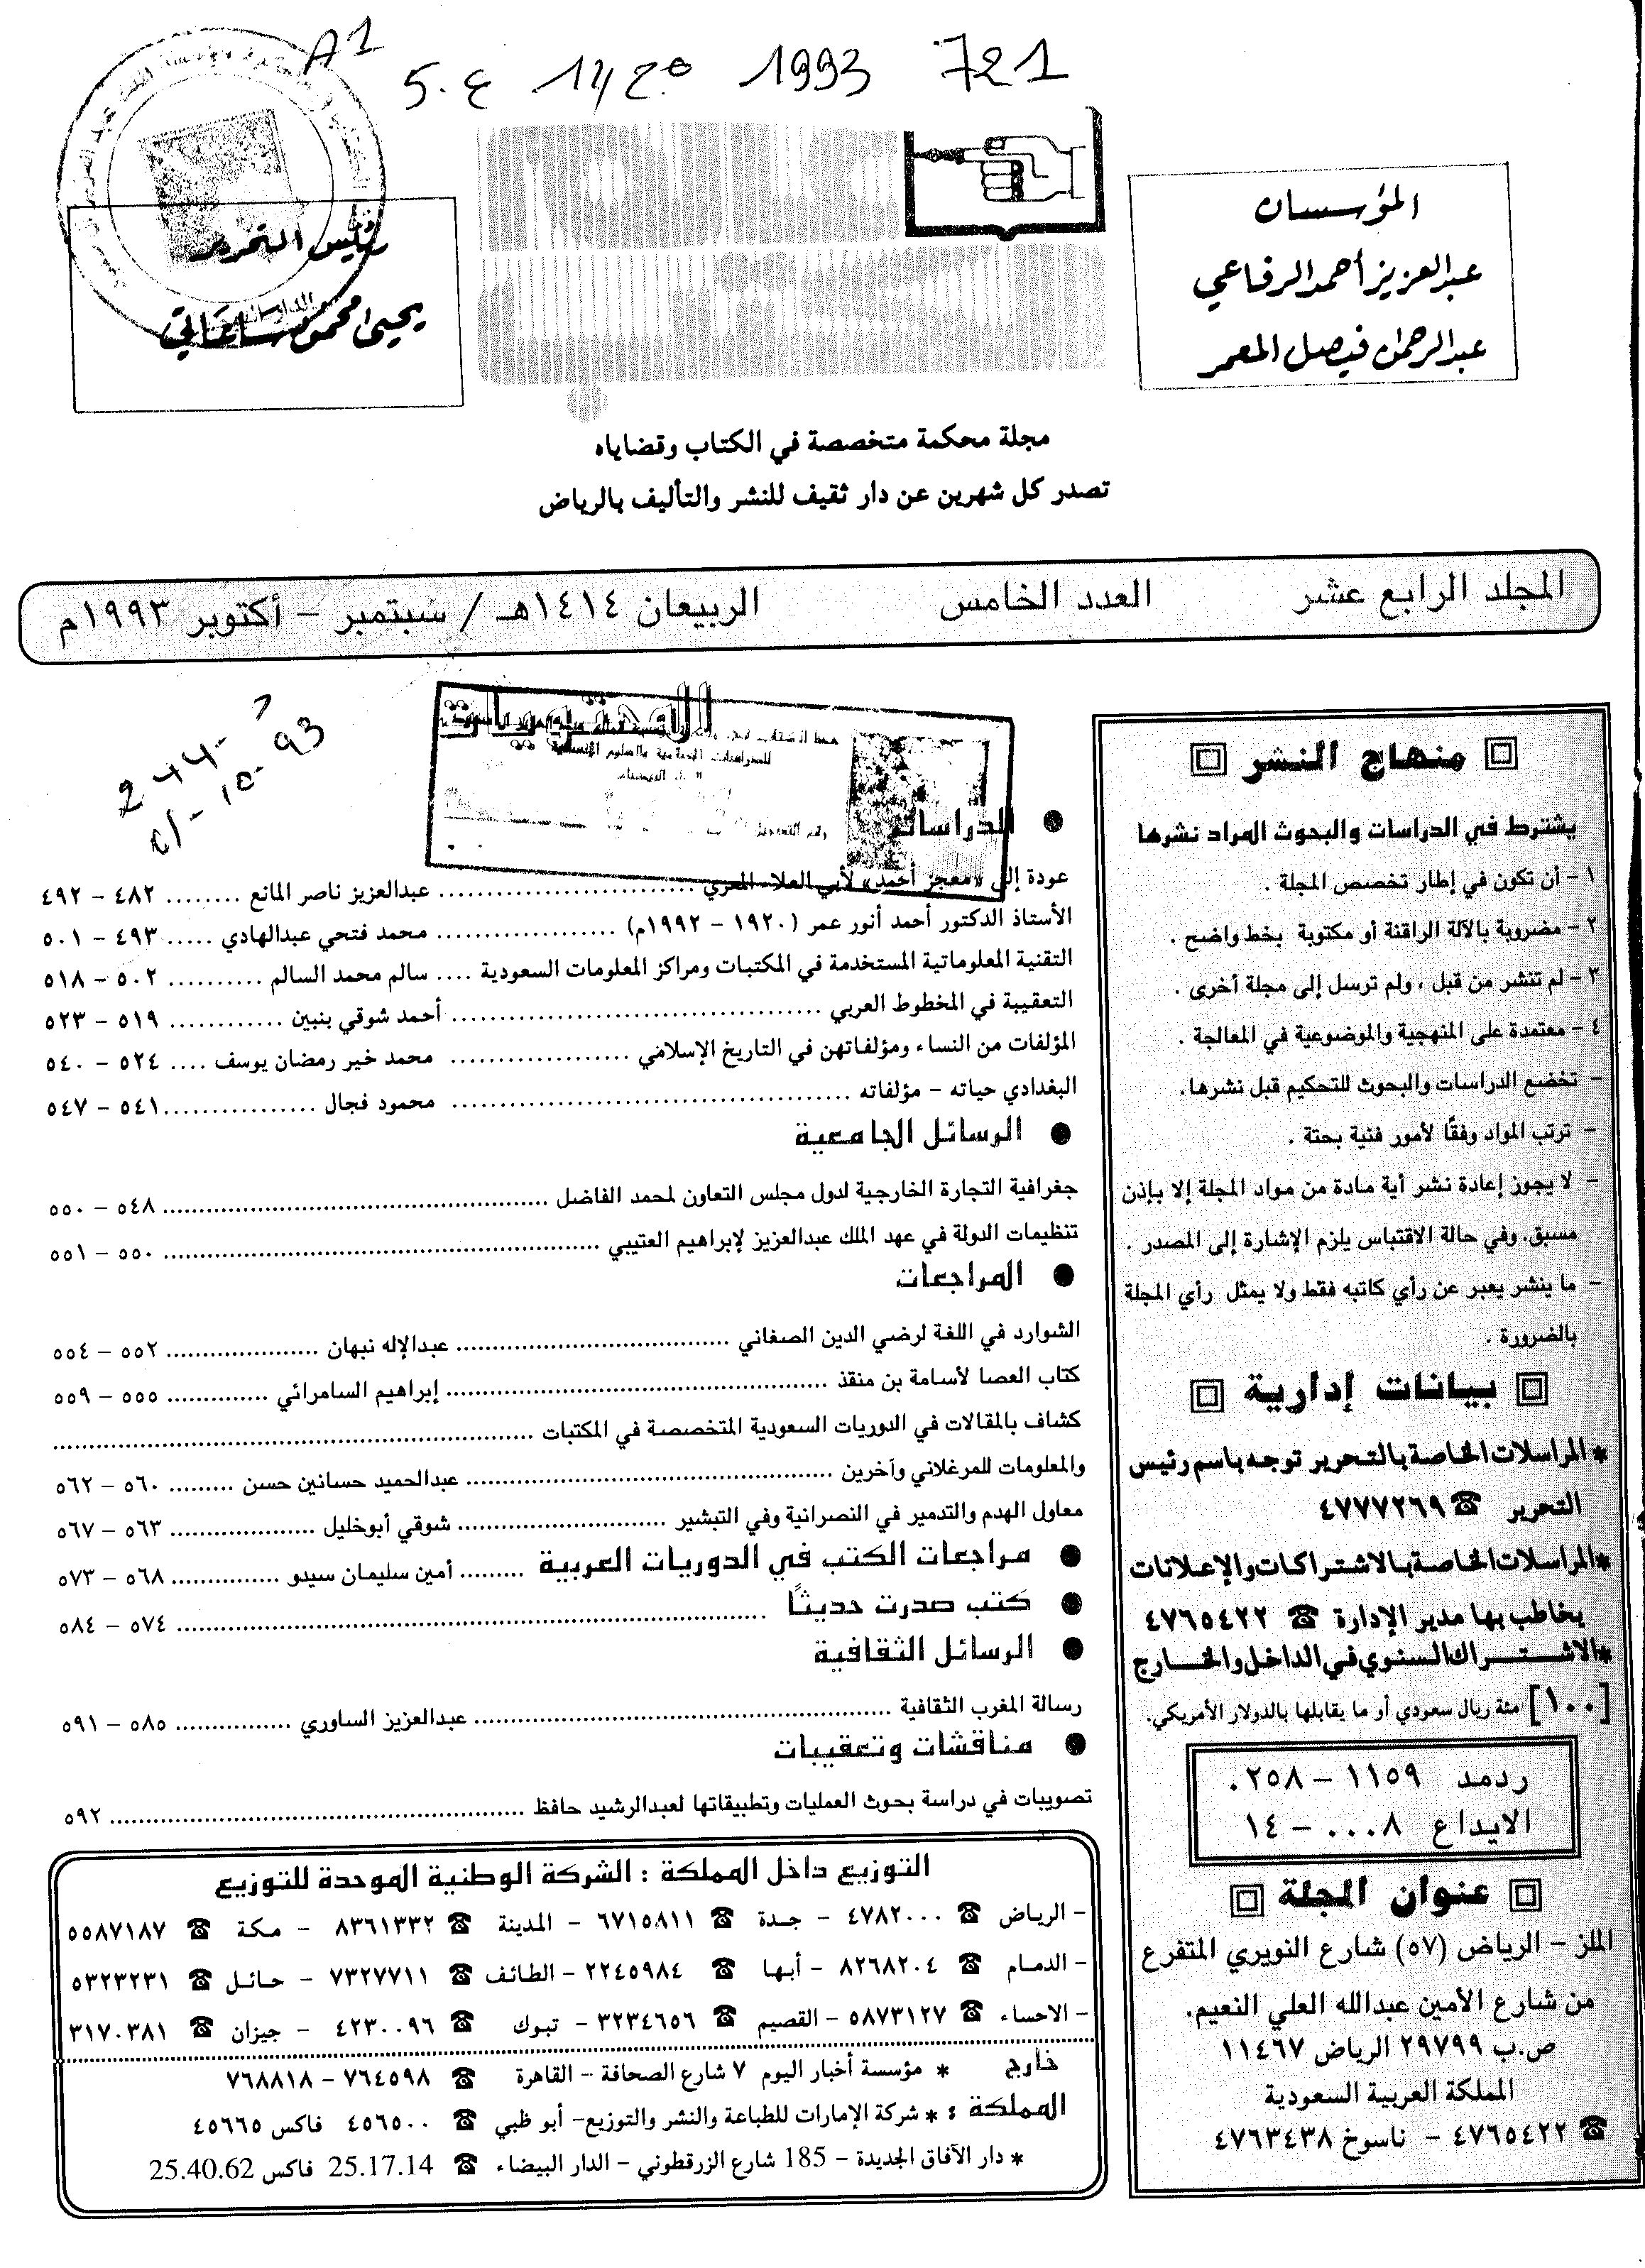 A1
1993 721
المؤسسان
عبدالعزيز أحمد الرفاعي
عبدالرحمن فيصل المعمر
رئيس التحرير
يحيى محمود ساعاتي
مجلة محكمة متخصصة في الكتاب وقضاياه
تصدر كل شهرين عن دار ثقيف للنشر والتأليف بالرياض
المجلد الرابع عشر العدد الخامس الربيعان ١٤١٤هـ / سبتمبر – أكتوبر ١٩٩٣م
منهاج النشر
يشترط في الدراسات والبحوث المراد نشرها
١ – أن تكون في إطار تخصص المجلة .
٢ – مضروبة بالآلة الراقنة أو مكتوبة بخط واضح .
٣ – لم تنشر من قبل ، ولم ترسل إلى مجلة أخرى .
٤ – معتمدة على المنهجية والموضوعية في المعالجة .
– تخضع الدراسات والبحوث للتحكيم قبل نشرها.
– ترتب المواد وفقًا لأمور فنية بحتة .
– لا يجوز إعادة نشر أية مادة من مواد المجلة إلا بإذن
مسبق. وفي حالة الاقتباس يلزم الإشارة إلى المصدر .
– ما ينشر يعبر عن رأي كاتبه فقط ولا يمثل رأي المجلة
بالضرورة .
بيانات إدارية
* المراسلات الخاصة بالتحرير توجه باسم رئيس
التحرير ☎ ٤٧٧٧٢٦٩
* المراسلات الخاصة بالاشتراكات والإعلانات
يخاطب بها مدير الإدارة ☎ ٤٧٦٥٤٢٢
* الاشتراك السنوي في الداخل والخارج
[١٠٠] مئة ريال سعودي أو ما يقابلها بالدولار الأمريكي.
ردمد ١١٥٩ – ٠٢٥٨
الايداع ٠٠٠٨ – ١٤
عنوان المجلة
الملز – الرياض (٥٧) شارع النويري المتفرع
من شارع الأمين عبدالله العلي النعيم.
ص.ب ٢٩٧٩٩ الرياض ١١٤٦٧
المملكة العربية السعودية
☎ ٤٧٦٥٤٢٢ – ناسوخ ٤٧٦٣٤٣٨
المحتويات
● الدراسات
عودة إلى «معجز أحمد» لأبي العلاء المعري ........ عبدالعزيز ناصر المانع ........ ٤٨٢ – ٤٩٢
الأستاذ الدكتور أحمد أنور عمر (١٩٢٠ – ١٩٩٢م) ........ محمد فتحي عبدالهادي ..... ٤٩٣ – ٥٠١
التقنية المعلوماتية المستخدمة في المكتبات ومراكز المعلومات السعودية .... سالم محمد السالم .......... ٥٠٢ – ٥١٨
التعقيبة في المخطوط العربي ........ أحمد شوقي بنبين ............ ٥١٩ – ٥٢٣
المؤلفات من النساء ومؤلفاتهن في التاريخ الإسلامي ........ محمد خير رمضان يوسف .... ٥٢٤ – ٥٤٠
البغدادي حياته – مؤلفاته ........ محمود فجال ........ ٥٤١ – ٥٤٧
● الرسائل الجامعية
جغرافية التجارة الخارجية لدول مجلس التعاون لمحمد الفاضل ........ ٥٤٨ – ٥٥٠
تنظيمات الدولة في عهد الملك عبدالعزيز لإبراهيم العتيبي ........ ٥٥٠ – ٥٥١
● المراجعات
الشوارد في اللغة لرضي الدين الصغاني ........ عبدالإله نبهان ........ ٥٥٢ – ٥٥٤
كتاب العصا لأسامة بن منقذ ........ إبراهيم السامرائي ........ ٥٥٥ – ٥٥٩
كشاف بالمقالات في الدوريات السعودية المتخصصة في المكتبات ........
والمعلومات للمرغلاني وآخرين ........ عبدالحميد حسانين حسن ......... ٥٦٠ – ٥٦٢
معاول الهدم والتدمير في النصرانية وفي التبشير ........ شوقي أبوخليل ........ ٥٦٣ – ٥٦٧
● مراجعات الكتب في الدوريات العربية ......... أمين سليمان سيدو ........ ٥٦٨ – ٥٧٣
● كتب صدرت حديثًا ........ ٥٧٤ – ٥٨٤
● الرسائل الثقافية
رسالة المغرب الثقافية ........ عبدالعزيز الساوري ........ ٥٨٥ – ٥٩١
● مناقشات وتعقيبات
تصويبات في دراسة بحوث العمليات وتطبيقاتها لعبدالرشيد حافظ ........ ٥٩٢
التوزيع داخل المملكة : الشركة الوطنية الموحدة للتوزيع
– الرياض ☎ ٤٧٨٢٠٠٠ – جدة ☎ ٦٧١٥٨١١ – المدينة ☎ ٨٣٦١٣٣٢ – مكة ☎ ٥٥٨٧١٨٧
– الدمام ☎ ٨٢٦٨٢٠٤ – أبها ☎ ٢٢٤٥٩٨٤ – الطائف ☎ ٧٣٢٧٧١١ – حائل ☎ ٥٣٢٣٢٣١
– الاحساء ☎ ٥٨٧٣١٢٧ – القصيم ☎ ٣٢٣٤٦٥٦ – تبوك ☎ ٤٢٣٠٠٩٦ – جيزان ☎ ٣١٧٠٣٨١
خارج * مؤسسة أخبار اليوم ٧ شارع الصحافة – القاهرة ☎ ٧٦٤٥٩٨ – ٧٦٨٨١٨
المملكة : * شركة الإمارات للطباعة والنشر والتوزيع– أبو ظبي ☎ ٤٥٦٥٠٠ فاكس ٤٥٦٦٥
* دار الآفاق الجديدة – 185 شارع الزرقطوني – الدار البيضاء ☎ 25.17.14 فاكس 25.40.62